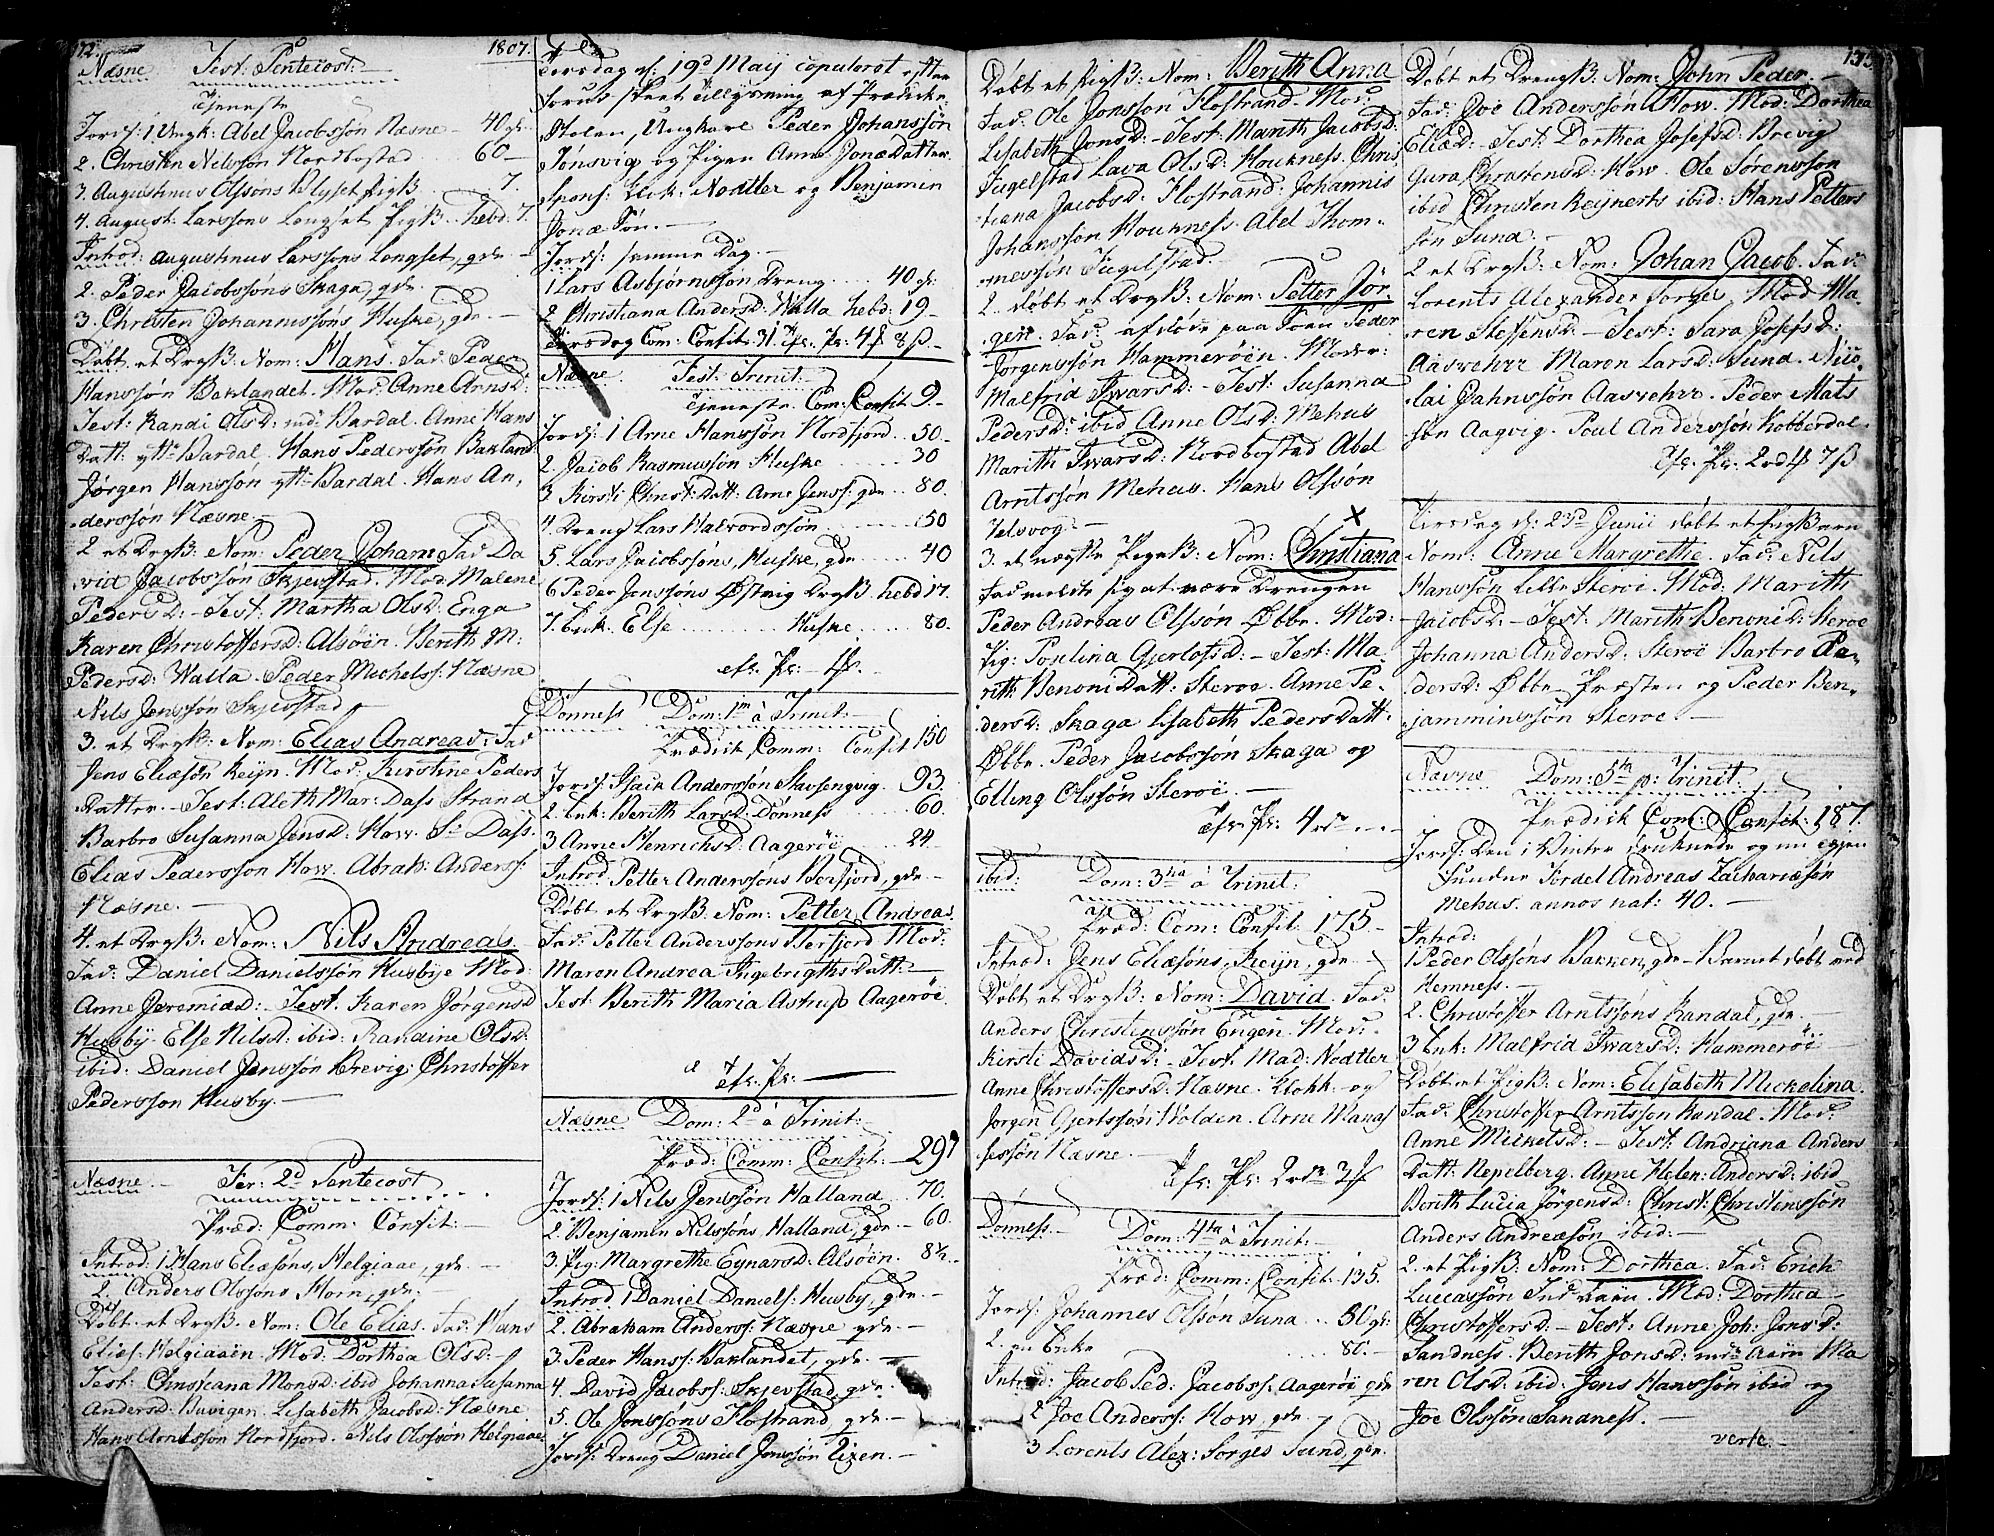 1807.
Næsne Fest: Pentecost:
Tjeneste
Jords: 1 Ungk: Abel Jacobssøn Næsne 40 gl:
2. Christen Nilssøn Nordbostad 60 –
3. Augustinus Olssøns Blyset PigB. 7.
4. August: Larssøns Longset PigB. hebd. 7.
Introd: Augustinus Larssøns Longset, gde –
2. Peder Jacobssøns Skaga, gde.
3. Christen Johannissøns Huske, gde. –
Døbt et DrgB: Nom: Hans. Fad: Peder
Hanssøn Baklandet. Mod: Anne Arnsd:
Test: Randi Olsd: indr Bardal. Anne Hans
Datt: yttr Bardal. Hans Pederssøn Bakland:
Jørgen Hanssøn ytt: Bardal. Hans An,
derssøn Næsne. –
2 et DrgB: Nom: Peder Johan Fad Da
vid Jacobssøn Skjevstad. Mod: Malene
Pedersd: – Test: Martha Olsd: Enga
Karen Christoffersd: Alsøen. Berith M:
Pedersd: Walla. Peder Michelss: Næsne
Nils Jenssøn Skjefstad
3. et DrgB: Nom: Elias Andreas: Fad
Jens Eliæsøn Reijn. Mod: Kirstine Peders
Datter. – Test: Aleth Mar: Dass Strand
Barbro Susanna Jensd: How. Sr Dass.
Elias Pederssøn How. Abrah: Anderss:
Næsne. –
4. et DrgB: Nom: Nils Andreas
Fad: Daniel Danielssøn Husbye Mod:
Anne Jeremiæd: – Test: Karen Jørgensd
Husby. Else Nilsd: ibid: Randine Olsd:
ibid: Daniel Jenssøn Brevig: Christoffer
Pederssøn Husby. –
Næsne – Fer: 2d Pentecost
Præd: Comm: Confit: –
Introd: 1 Hans Eliæsøns, Helgiaae, gde. –
2. Anders Olssøns Horn, gde: –
Døbt et DrgB. Nom: Ole Elias. Fad: Hans
Elies: Helgiaaen. Mod: Dorthea Olsd: –
Test: Christiana Monsd: ibid Johanna Susanna
Andersd: Buvigen. Lisabeth Jacobsd: Næsne
Hans Arntssøn Nordfjord. Nils Olssøn Helgiaae
Torsdag d: 19d Maij copuleret efter
forud skeet Tillysning af Prædicke
Stolen, Ungkarl Peder Johanssøn
Tønsvig og Pigen Anne JonæDatter.
spons: Klok: Nodtler og Benjamin
Jonæ Søn. –
Jords: samme Dag. –
1 Lars Asbjørnssøn Dreng 40 gl:
2 Christiana Andersd: Walla hebd: 19 –
Tirsdag Com: Confit: 31.
Næsne. Fest: Trinit:
Tjeneste. Com: Confit 9. –
Jords: 1 Arne Hanssøn Nordfjord 50 –
2. Jacob Rasmussøn Huske 30
3 Kirsti Christ: Datt: Arne Jenss: gde 80.
4 Dreng Lars Halvordssøn 150
5. Lars Jacobssøns, Huske, gde 40
6 Peder Jonssøns Østvig DrgB hebd 17.
7. Enk: Else Huske 80.
Donness Dom: 1m à Trinit:
Prædick Comm: Confit 150
Jords: Isach Anderssøn Skavsengvig. 93.
2. Enk: Berith Larsd: Dønness 60.
3 Anne Henrichsd: Aagerøe 24 –
Introd: Petter Anderssøns Berfjord, gde –
Døbt et DrgB. Nom: Petter Andreas.
Fad: Petter Anderssøns Berfjord Mod:
Maren Andrea Ingebrigths Datt: –
Test: Berith Maria Astrup Aagerøe.
Næsne Dom: 2d à Trinit: –
Præd: Comm: Confit: – 297
Jords: 1 Nils Jenssøn Halland 70.
2. Benjamin Nilssøns Halland, gde – 60.
3. Pig: Margrethe Eynarsd: Alsøen. 8½
Introd: 1 Daniel Daniels: Husby, gde. –
2. Abraham Anderss: Næsne gde. –
3. Peder Hanss: Baklandet, gde. –
4. David Jacobss: Skjevstad, gde. –
5. Ole Jonssøns Flostrand, gde. –
Jords: Dreng Daniel Jonssøn Tixen. –
Døbt et PigB: Nom: Berith Anna
Fad: Ole Jonssøn Flostrand. Mod:
Lisabeth Jonsd: – Test: Marith Jacobsd:
Fugelstad Lava Olsd: Houkness. Chris
tiana Jacobsd: Flostrand: Johannis
Johanssøn Houkness. Abel Thom-
messøn Fugelstad
2. døbt et DrgB: Nom: Petter Jør,
gen. Fad: afdøde paa Soen Peder
Jørgenssøn Hammerøen. Moder:
Malfrid Iwarsd: – Test: Susanna
Pedersd: ibid Anne Olsd: Mehus
Marith Iwarsd: Nordbostad Abel
Arntssøn Mehus. Hans Olssøn
Valsvog: –
3. et uægte PigeB: Nom: Christiana
Fad meldte sig at være Drengen
Peder Andreas Olssøn Øbbe. Mod:
Pig: Poulina Gjerlofsd: – Test: Ma,
rith: Benoni Datt: Steroe. Anne Pe,
dersd: Skaga Lisabeth Peders Datt.
Øbbe. Peder Jacobssøn Skaga og
Elling Olssøn Steroe. –
ibid: Dom: 3tia à Trinit:
Præd: Com: Confit: 175 –
Introd: Jens Eliæsøns, Reijn, gde. –
Døbt et DrgB: Nom: David. Fad:
Anders Christenssøn Engen. Mod:
Kirsti Davidsd: – Test: Mad: Nodtler
Anne Christoffersd: Næsne. Klokk: og
Jørgen Gjertssøn Holden. Arne Manas
sessøn Næsne. –
Dønness. Dom: 4ta à Trinit: –
Præd: Comm: Confit: 135.
Jords: Johannes Olssøn Suna 30 gl:
2. en Enke 80. –
Introd: Jacob Ped: Jacobss: Aagerøe gde
2 Joe Anderss: How, gde.
3 Lorents Alex: Sorges Sund, gde.
Døbt et DrengB: Nom: John Peder. –
Fad: Joe Anderssøn How. Mod: Dorthea
Eliæd: – Test: Dorthea Josefsd: Brevig
Gura Christensd: How. Ole Sørenssøn
ibid Christen Reijnerts ibid: Hans Petters
søn Suna. –
2 et DrgB: Nom: Johan Jacob. Fad:
Lorents Alexander Sorges, Mod: Ma
ren Steffensd: – Test: Sara Josefsd:
Aasvehrr Maren Larsd: Sund. Nico,
lai Jahnssøn Aasvehrr. Peder Mats
søn Aagvig. Poul Anderssøn Kobberdal.
Tirsdag d: 23d Junii døbt et PigBarn
Nom: Anne Margrethe. Fad: Nils
Hanssøn Lille Steroe. Mod: Marith
Jacobsd: – Test: Marith Benonid: Steroe
Johanna Andersd: Steroe Barbro Pe,
dersd: Øbbe Præsten og Peder Ben,
jaminssøn Steroe. –
Næsne Dom: 5ta p: Trinit:
Prædick Com: Confit: 187.
Jords: Den i Vinter druknede og nu igjen
fundne Fordel Andreas Zachariæsøn
Mehus. annos nat: 40. –
Introd:
1 Peder Olssøns Bakken, gde – Barnet døbt ved
Hemness. –
2. Christoffer Arntssøns Randal, gde. –
3 Enk: Malfrid Iwarsd: Hammerøe
Døbt et PigB: Nom: Elisabeth Mickelina.
Fad: Christoffer Arntssøn Randal. Mod:
Anne Mickelsd: – Test: Andriana Anders
Datt: Nepelberg. Anne Helen: Andersd: ibid
Berith Lucia Jørgensd: Christ: Christenssøn
Anders Andreæsøn ibid: –
2. et PigB: Nom: Dorthea. Fad: Erich
Luccassøn Indviin. Mod: Dorthea
Christoffersd: – Test: Anne Joh: Jonsd:
Sandness. Berith Jonsd: indr Aam Ma
ren Olsd: ibid: Jens Hanssøn ibid og
Joe Olssøn Sandness. –
verte. –